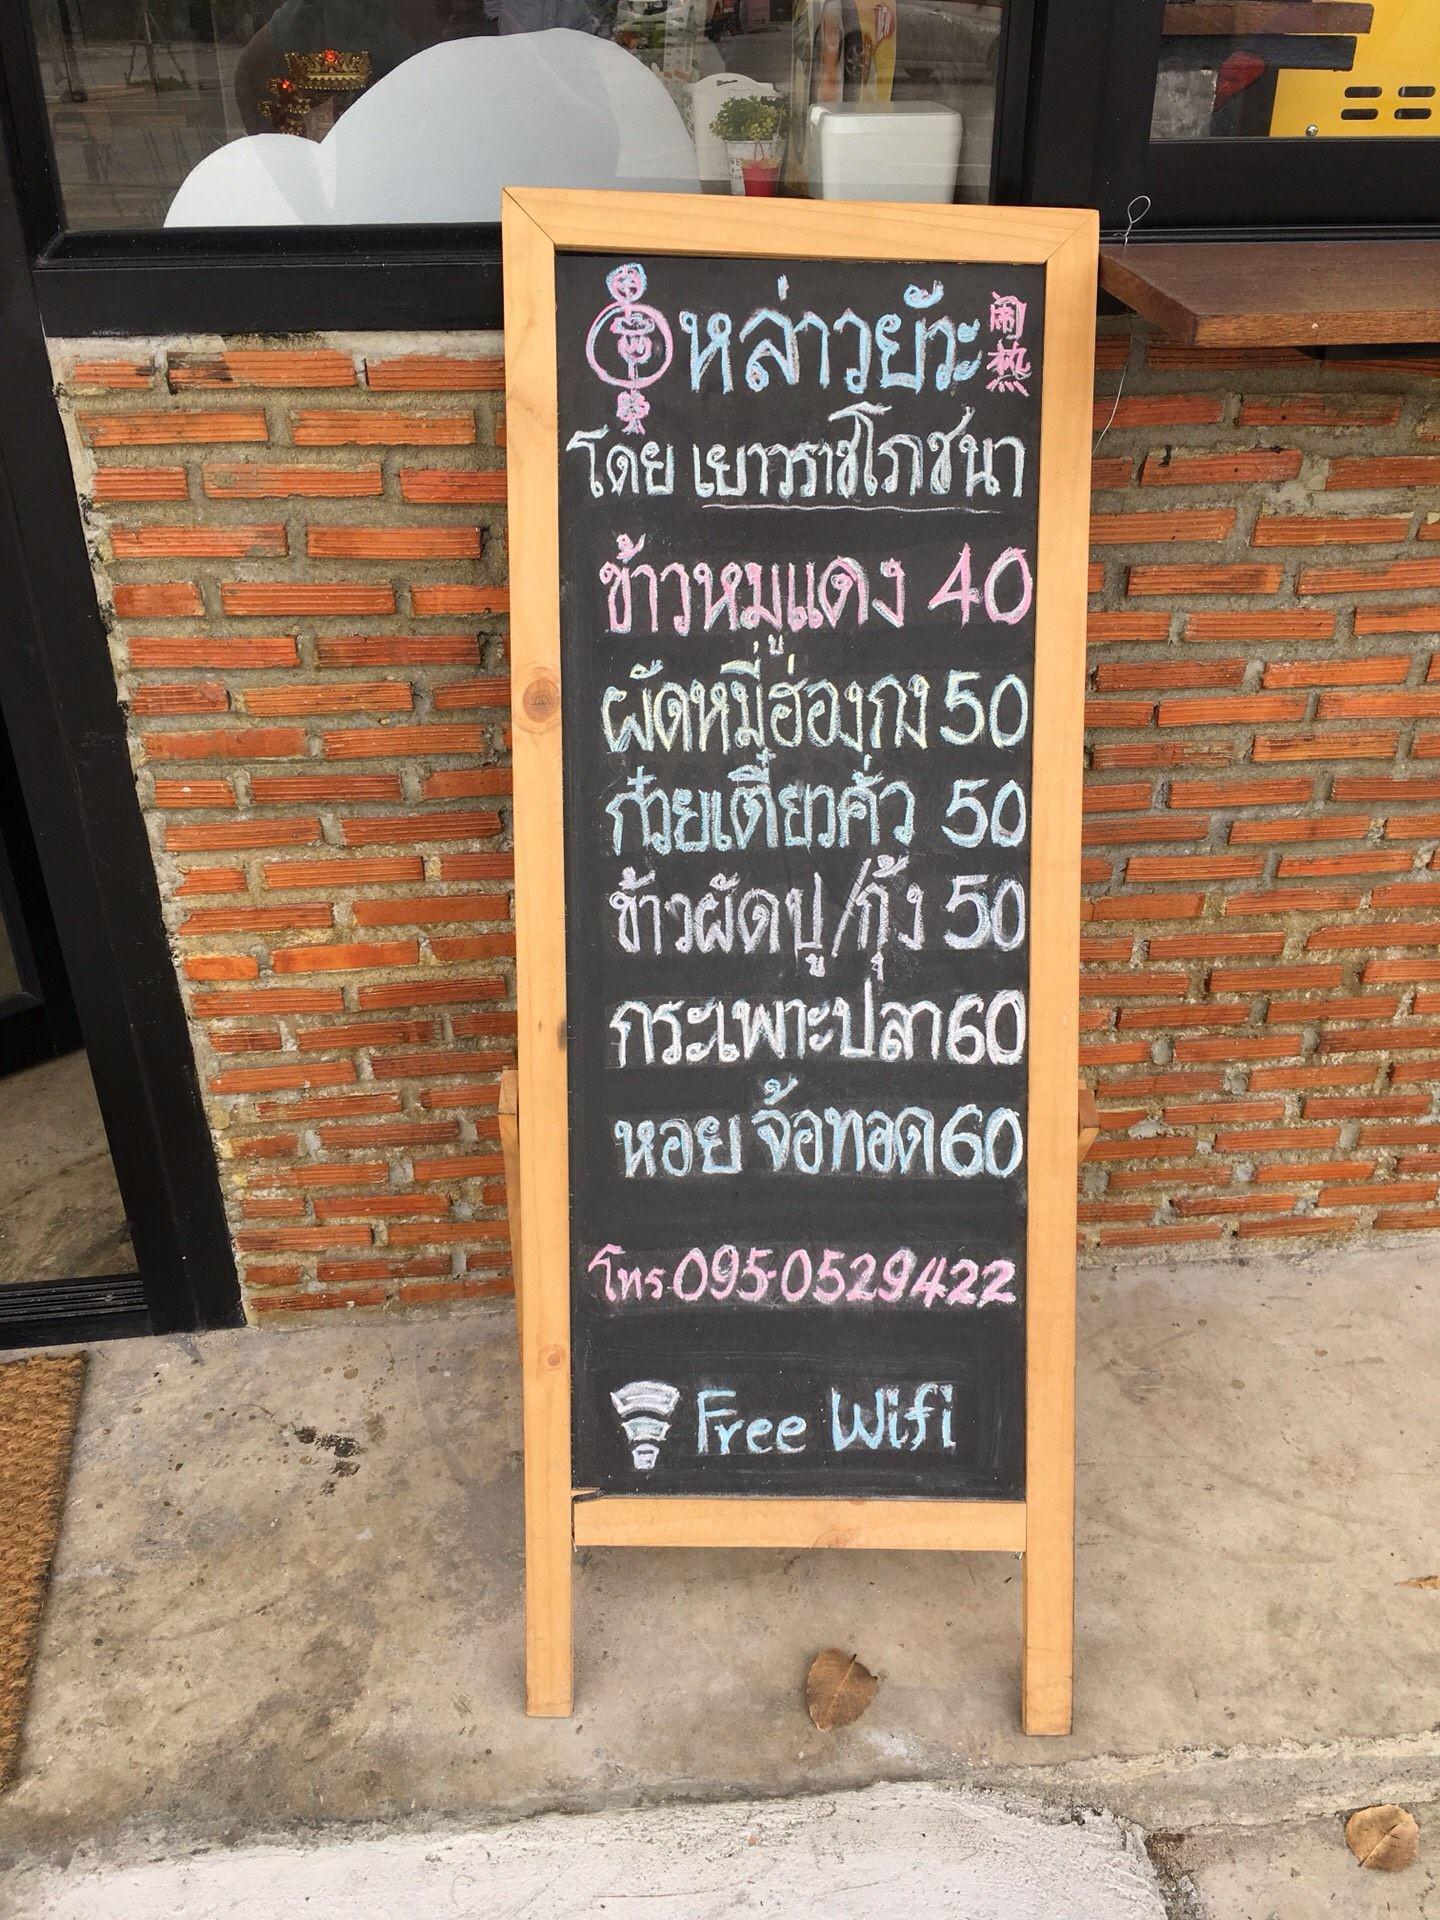 หล่าวยัวะ 闹热
โดย เยาวราชโภชนา
ข้าวหมูแดง 40
ผัดหมี่ฮ่องกง 50
ก๋วยเตี๋ยวคั่ว 50
ข้าวผัดปู/กุ้ง 50
กระเพาะปลา 60
หอยจ้อทอด 60
โทร 095-0529422
Free Wifi